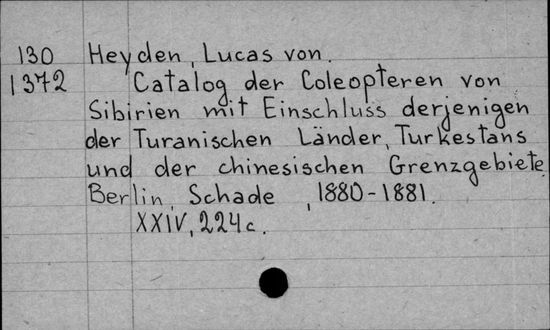 130 Heyden, Lucas von.
1372 Catalog der Coleopteren von
Sibirien mit Einschluss derjenigen
der Turanischen Länder, Turkestans
und der chinesischen Grenzgebiete.
Berlin, Schade, 1880-1881.
XXIV, 224 c.